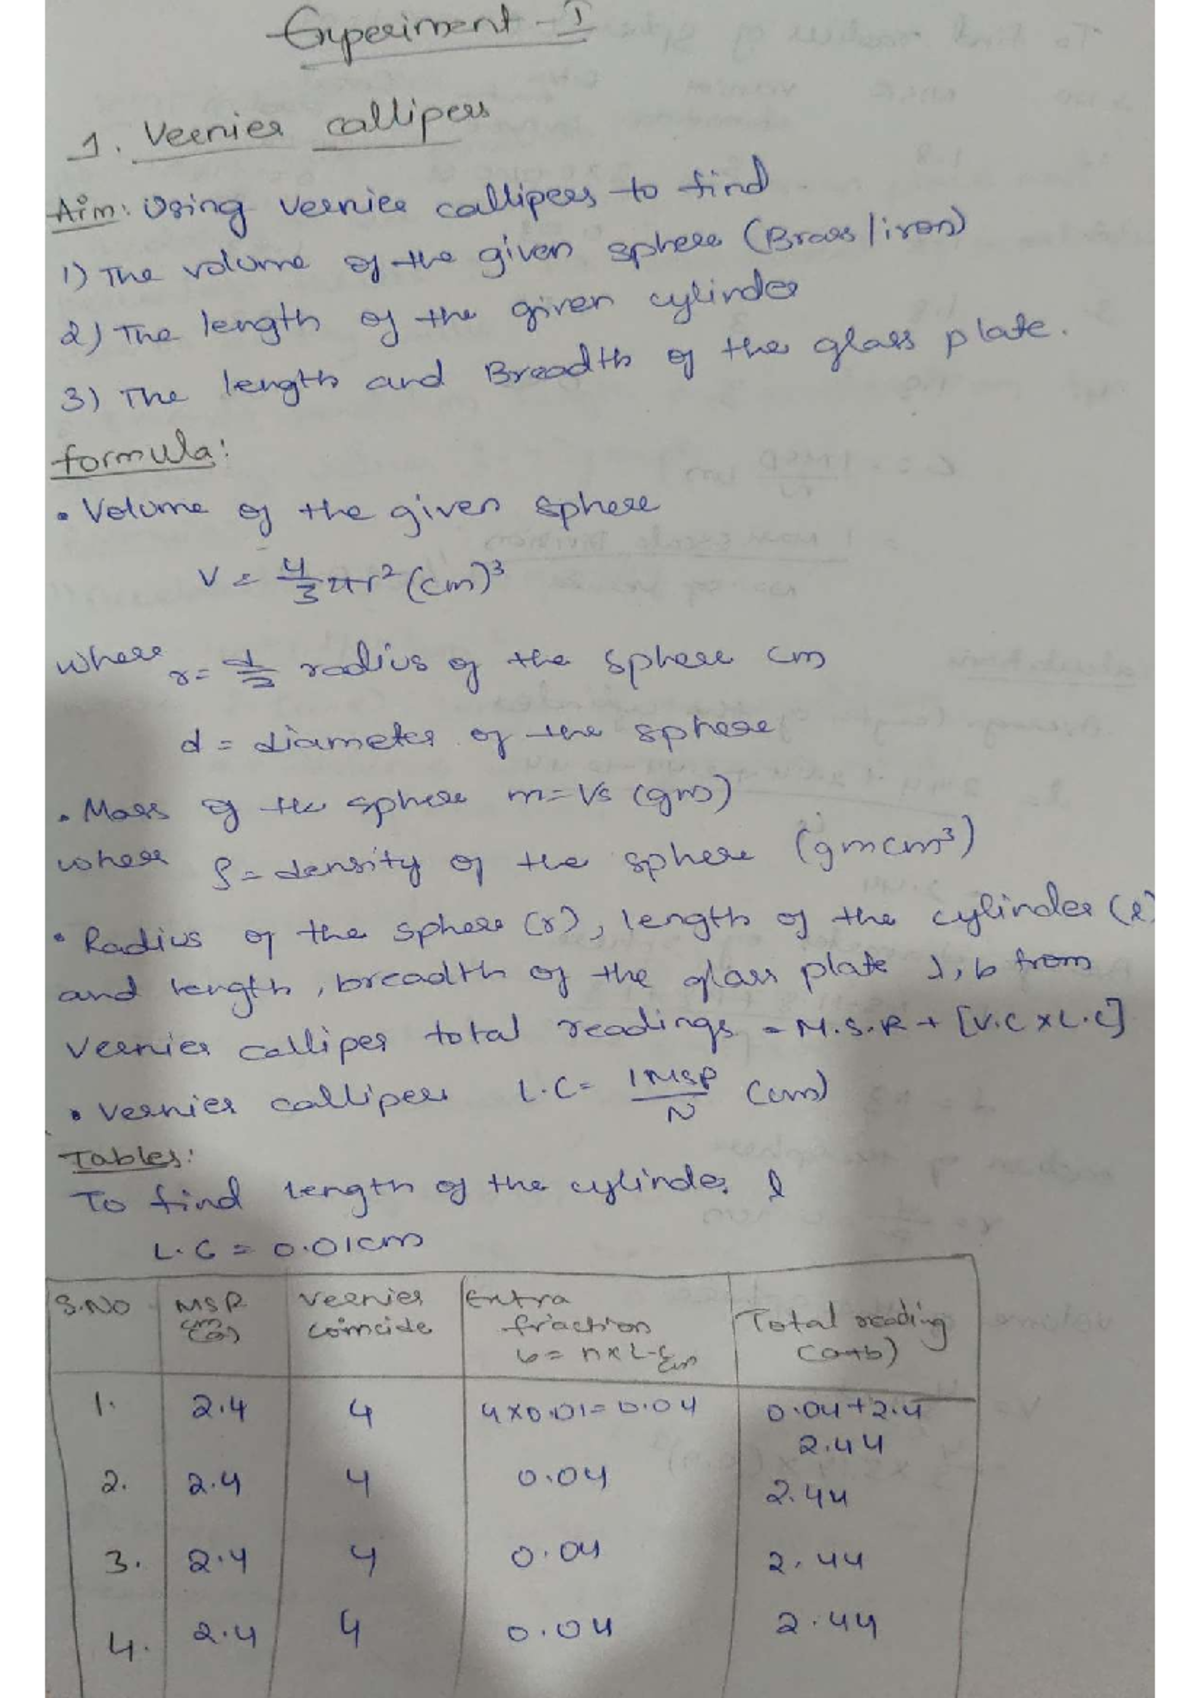 Experiment - I
1. Vernier callipers
Aim: Using vernier callipers to find
1) The volume of the given sphere (Brass/iron)
2) The length of the given cylinder
3) The length and Breadth of the glass plate.
formula:
• Volume of the given sphere
V = 4/3 πr² (cm)³
where r = d/2 radius of the sphere cm
d = diameter of the sphere
• Mass of the sphere m = Vs (gm)
where ρ = density of the sphere (gmcm³)
• Radius of the sphere (r), length of the cylinder (l)
and length, breadth of the glass plate l, b from
Vernier calliper total readings = M.S.R + [V.C x L.C]
• Vernier callipers L.C = 1MSD/N (cm)
Tables:
To find length of the cylinder l
L.C = 0.01cm
S.No MSR cm (a) Vernier coincide Extra fraction b = n x L.C cm Total reading (a+b)
1. 2.4 4 4x0.01=0.04 0.04+2.4
2.44
2. 2.4 4 0.04 2.44
3. 2.4 4 0.04 2.44
4. 2.4 4 0.04 2.44